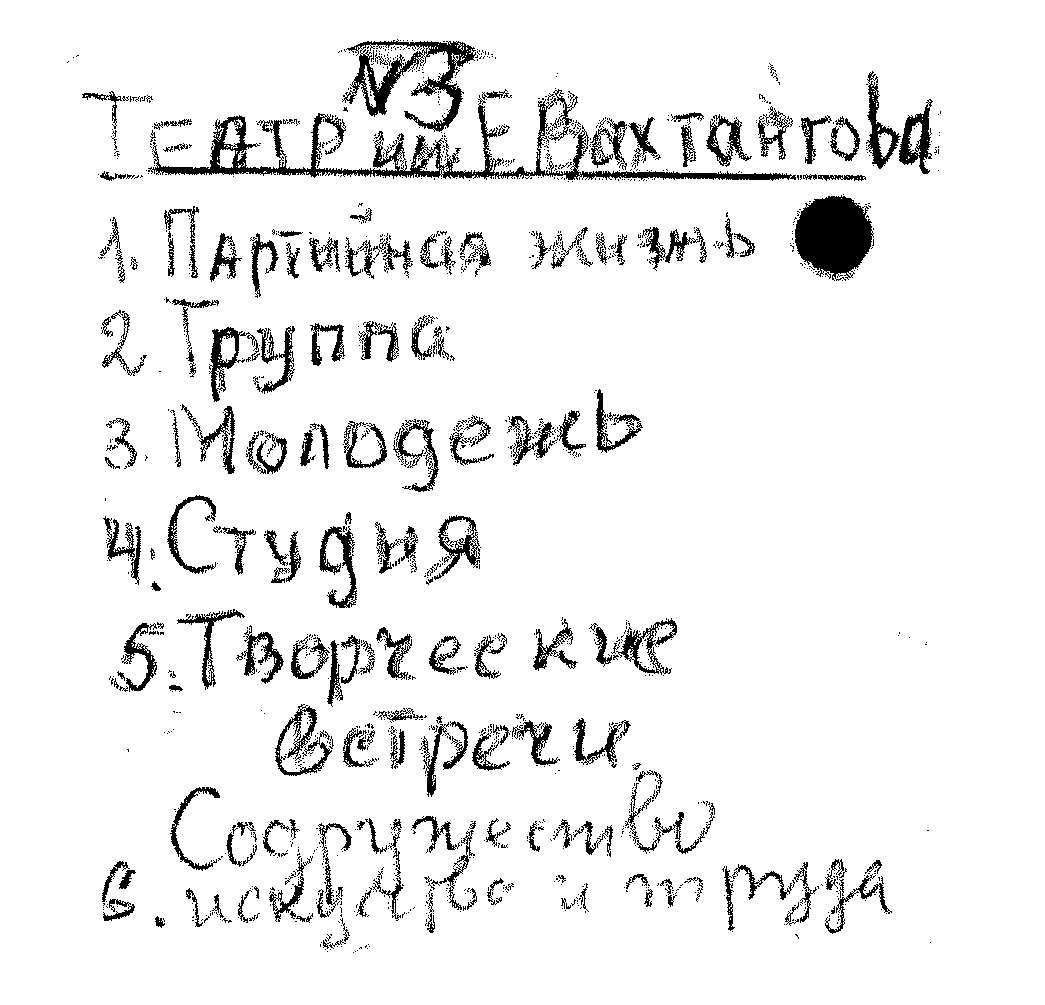 N3
ТЕАТР им Е. Вахтангова
1. Партийная жизнь
2. Труппа
3. Молодежь
4. Студия
5. Творческие
встречи.
Содружество
6. искусство и труда